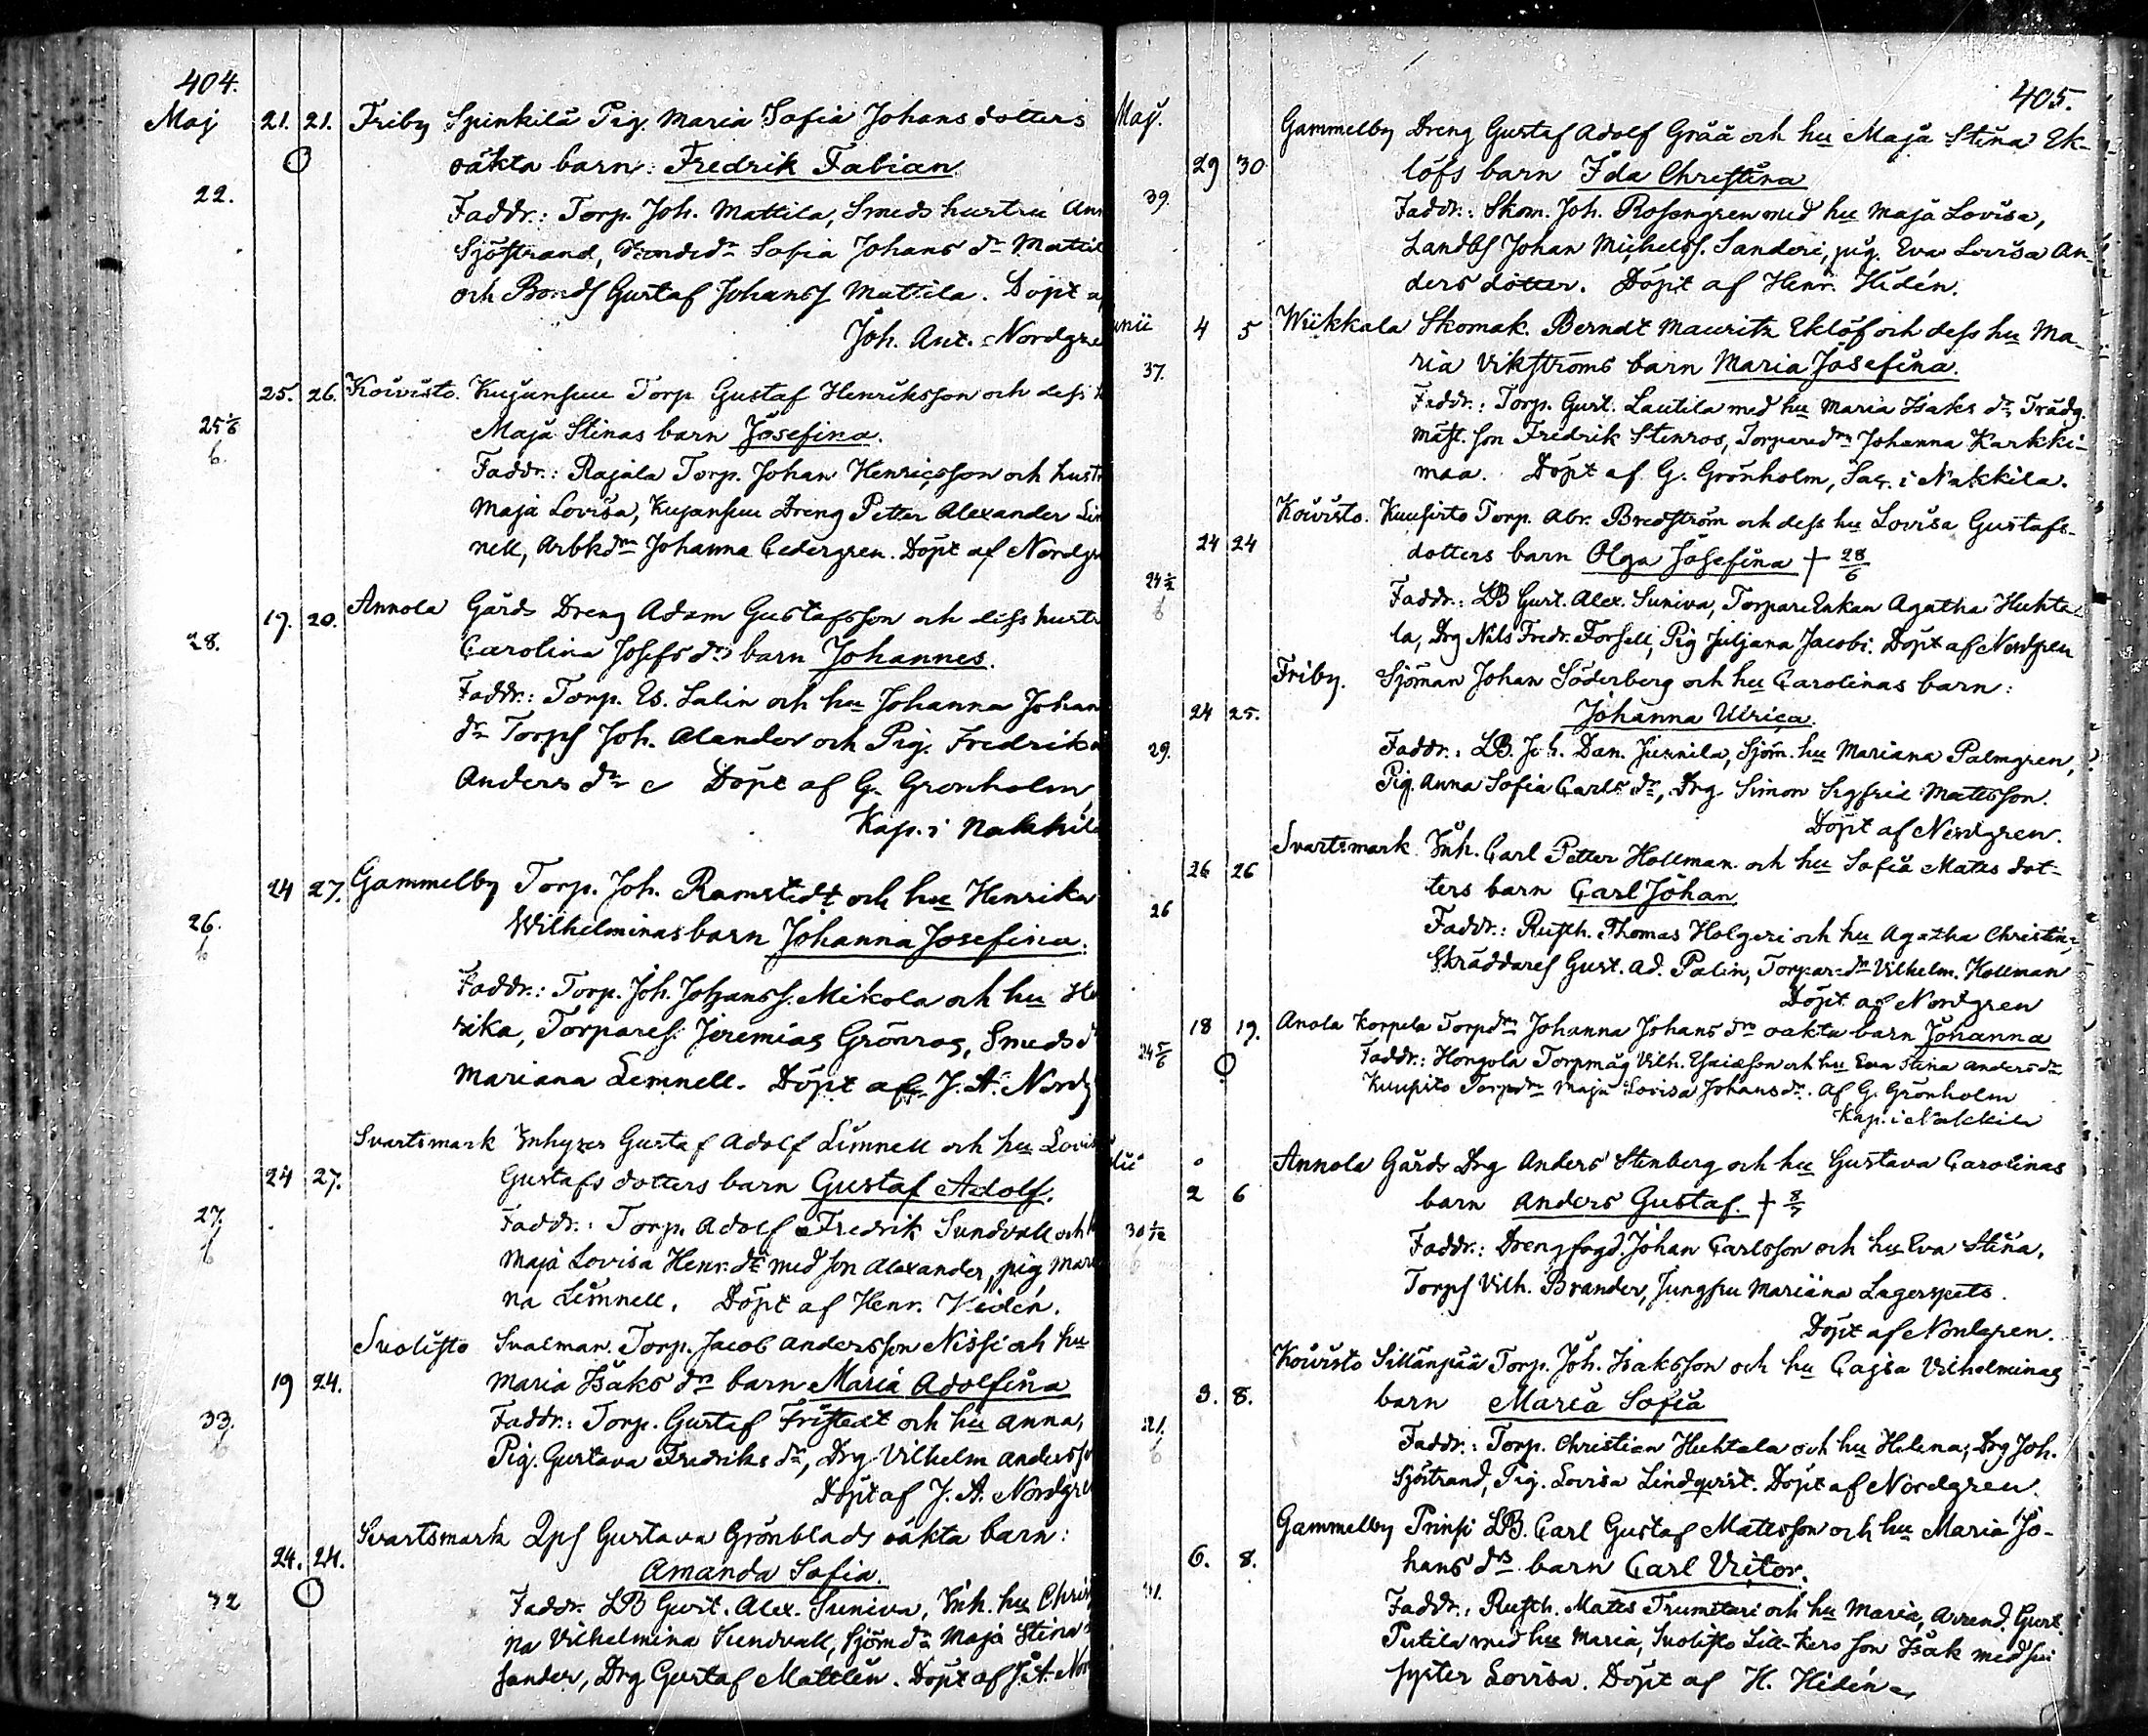 404.
Maj 21. 21. Friby Spinkilä Pig. Maria Sofia Johansdotters
oäkta barn: Fredrik Fabian.
22. Faddr.: Torp. Joh. Mattila, Smeds hustru
Sjöstrand, Sofia Johans dr
och Bonds Gustaf Johans Mattila. Döpt
Joh. Ant. Nordgre
25. 26. Koivisto. Kujansuu Torp Gustaf Henriksson och dess
Maja Stinas barn Josefina.
Faddr.: Rajala Torp. Johan Henricsson och
Maja Lovisa, Kujansuu Dreng Petter Alexander
nell, Arbkdn Johanna Cedergren. Döpt af
19. 20. Annola Gårds Dreng Adam Gustafsson och dess
28. Carolina Josefs drs barn Johannes.
Faddr.: Torp. Es. Salin och hu Johanna Johan
dr Torps Joh. Alander och Pig. Fredrik
Anders dr Döpt af G. Grönholm,
Kap. i Nakkila
24 27. Gammelby Torp. Joh. Ramstedt och hu Henrika
26. Wilhelminas barn Johanna Josefina.
Faddr.: Torp. Joh. Johanss. Mikola och hu
rika, Torpares Jeremias Grönros, Smeds
Mariana Lemnell. Döpt af J. A.
Svartsmark Inhyses Gustaf Adolf Limnell och hu
24 27. Gustafs dotters barn Gustaf Adolf.
27. Faddr.: Torp. Adolf Fredrik Sundvall och
Maja Lovisa Henr. dr med son Alexander, pig
na Limnell. Döpt af Henr. Hidén.
Suolisto Svalman. Torp. Jacob Andersson Nissi och hu
19 24. Maria Isaks drs barn Maria Adolfina
33. Faddr.: Torp. Gustaf Fristedt och hu Anna,
Pig. Gustava Fredriks dr, Drg Vilhelm
Döpt af J. A. Nordgre
Svartsmark Qps Gustava Grönblads oäkta barn:
24. 24. Amanda Sofia.
32 Faddr. LB Gust. Alex. Suniva, Inh. hu
na Vilhelmina Sundvall, Sjöm dr Maja Stina
sander, Drg Gustaf Mattlin. Döpt af J. A.
405.
Maj. Gammelby Dreng Gustaf Adolf Grää och hu Maja Stina Ek-
29 30 löfs barn Ida Christina
39. Faddr.: Skom. Joh. Rosengren med hu Maja Lovisa,
Landbs Johan Michelss. Sanderi, pig. Eva Lovisa An-
ders dotter. Döpt af Henr. Hidén.
4 5 Wiikkala Skomak. Berndt Mauritz Eklöf och dess hu Ma-
37. ria Vikströms barn Maria Josefina.
Faddr.: Torp. Gust. Lautila med hu Maria Isaks dr, Trädg.
mäst. son Fredrik Stenros, Torparedn Johanna Karkki-
maa. Döpt af G. Grönholm, Sac. i Nakkila.
Koivisto. Kuusisto Torp. Abr. Bredström och dess hu Lovisa Gustafs-
24 24 dotters barn Olga Josefina + 28/6
Faddr.: LB Gust. Alex. Suniva, Torpare Enkan Agatha Huhta-
la, Drg Nils Fredr. Forsell, Pig Juljana Jacobi. Döpt af Nordgren
Friby. Sjöman Johan Söderberg och hu Carolinas barn:
24 25. Johanna Ulrica.
29. Faddr.: LB. Joh. Dan. Sjöm. hu Mariana Palmgren,
Pig. Anna Sofia Carls dr, Drg Simon Sigfrid Matsson.
Döpt af Nordgren.
Svartsmark Inh. Carl Petter Hollman och hu Sofia Mats dot-
26 26 ters barn Carl Johan.
26 Faddr.: Rusth. Thomas Holgeri och hu Agatha Christin,
Skräddares Gust. Ad. Palin, Torpar-dr Vilhelm. Hollman
Döpt af Nordgren
18 19. Anola Korpela Torpdrn Johanna Johans drs oäkta barn Johanna
Faddr.: Hongola Torpmåg Vilh. Esaiasson och hu Eva Stina Andersdr
Torpdr Maja Lovisa Johansdr. Af G. Grönholm
Kap. i Nakkila
Annola Gårds Drg Anders Stenberg och hu Gustava Carolinas
2 6 barn Anders Gustaf. + 8/7
Faddr.: Drengfogd. Johan Carlsson och hu Eva Stina,
Torps Vilh. Brander, Jungfru Mariana Lagerspets.
Döpt af Nordgren.
Koivisto Sillanpää Torp. Joh. Isaksson och hu Cajsa Vilhelminas
3. 8. barn Maria Sofia
21. Faddr.: Torp. Christian Huhtala och hu Helena, Drg Joh.
Sjöstrand, Pig. Lovisa Lindqvist. Döpt af Nordgren.
Gammelby Prinsi LB. Carl Gustaf Matsson och hu Maria Jo-
6. 8. hans drs barn Carl Victor.
Faddr.: Rusth. Mats Trumetari och hu Maria, Arrend. Gust.
Putila med hu Maria, Suolisto son Isak med
syster Lovisa. Döpt af H. Hidén.